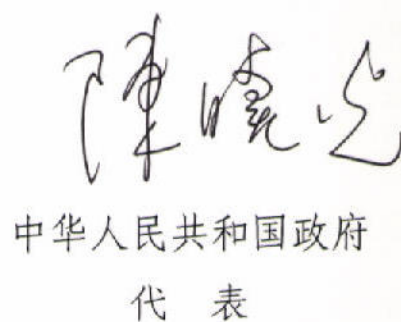 陈晓光
中华人民共和国政府
代 表